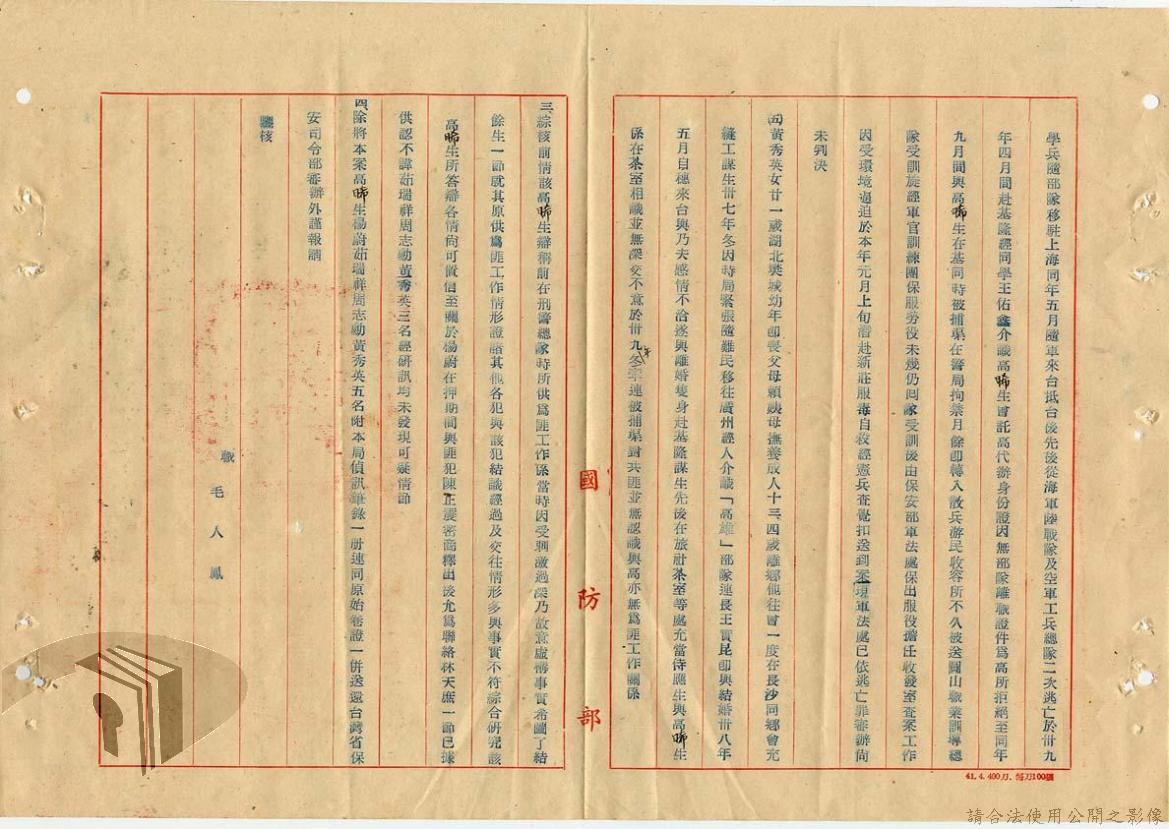 學兵隨部隊移駐上海同年五月隨軍來台抵台後先後從海軍陸戰隊及空軍工兵總隊二次逃亡於卅九
年四月間赴基隆經同學王佑鑫介識高 生曾託高代辦身份證因無部隊離職證件為高所拒絕至同年
九月間與高 生在基同時被捕渠在警局拘禁月餘即轉入散兵游民收容所不久被送圓山職業訓導總
隊受訓旋經軍官訓練團保服勞役未幾仍回隊受訓後由保安部軍法處保出服役擔任收發室查案工作
因受環境逼迫於本年元月上旬潛赴新莊服毒自殺經憲兵查覺扣送到案現軍法處已依逃亡罪審辦尚
未判決
㈤黃秀英女廿一歲湖北 城幼年即喪父母賴姨母撫養成人十三、四歲離鄉他往曾一度在長沙同鄉會充
縫工謀生卅七年冬因時局緊張隨難民移往廣州經人介識「高雄」部隊連長王實昆即與結婚卅八年
五月自穗來台與乃夫感情不洽遂與離婚隻身赴基隆謀生先後在旅社茶室等處充當侍應生與高 生
係在茶室相識並無深交不意於卅九年冬牽連被捕渠對共匪並無認識與高亦無為匪工作關係
三、綜核前情該高 生辯稱前在刑警總隊時所供為匪工作係當時因受刺激過深乃故意虛構事實希圖了結
餘生一節就其原供為匪工作情形證諸其他各犯與該犯結識經過及交往情形多與事實不符綜合研究該
高 生所答辯各情尚可置信至關於楊蔚在押期間與匪犯陳正宸密商釋出後允為聯絡林天庶一節已據
供認不諱茹瑞祥周志勳黃秀英三名經研訊均未發現可疑情節
四、除將本案高 生楊蔚茹瑞祥周志勳黃秀英五名附本局偵訊筆錄一冊連同原始卷證一併送還台灣省保
安司令部審辦外謹報請
鑒核
職 毛人鳳
國防部
41.4.400刀.每刀100張
請合法使用公開之影像